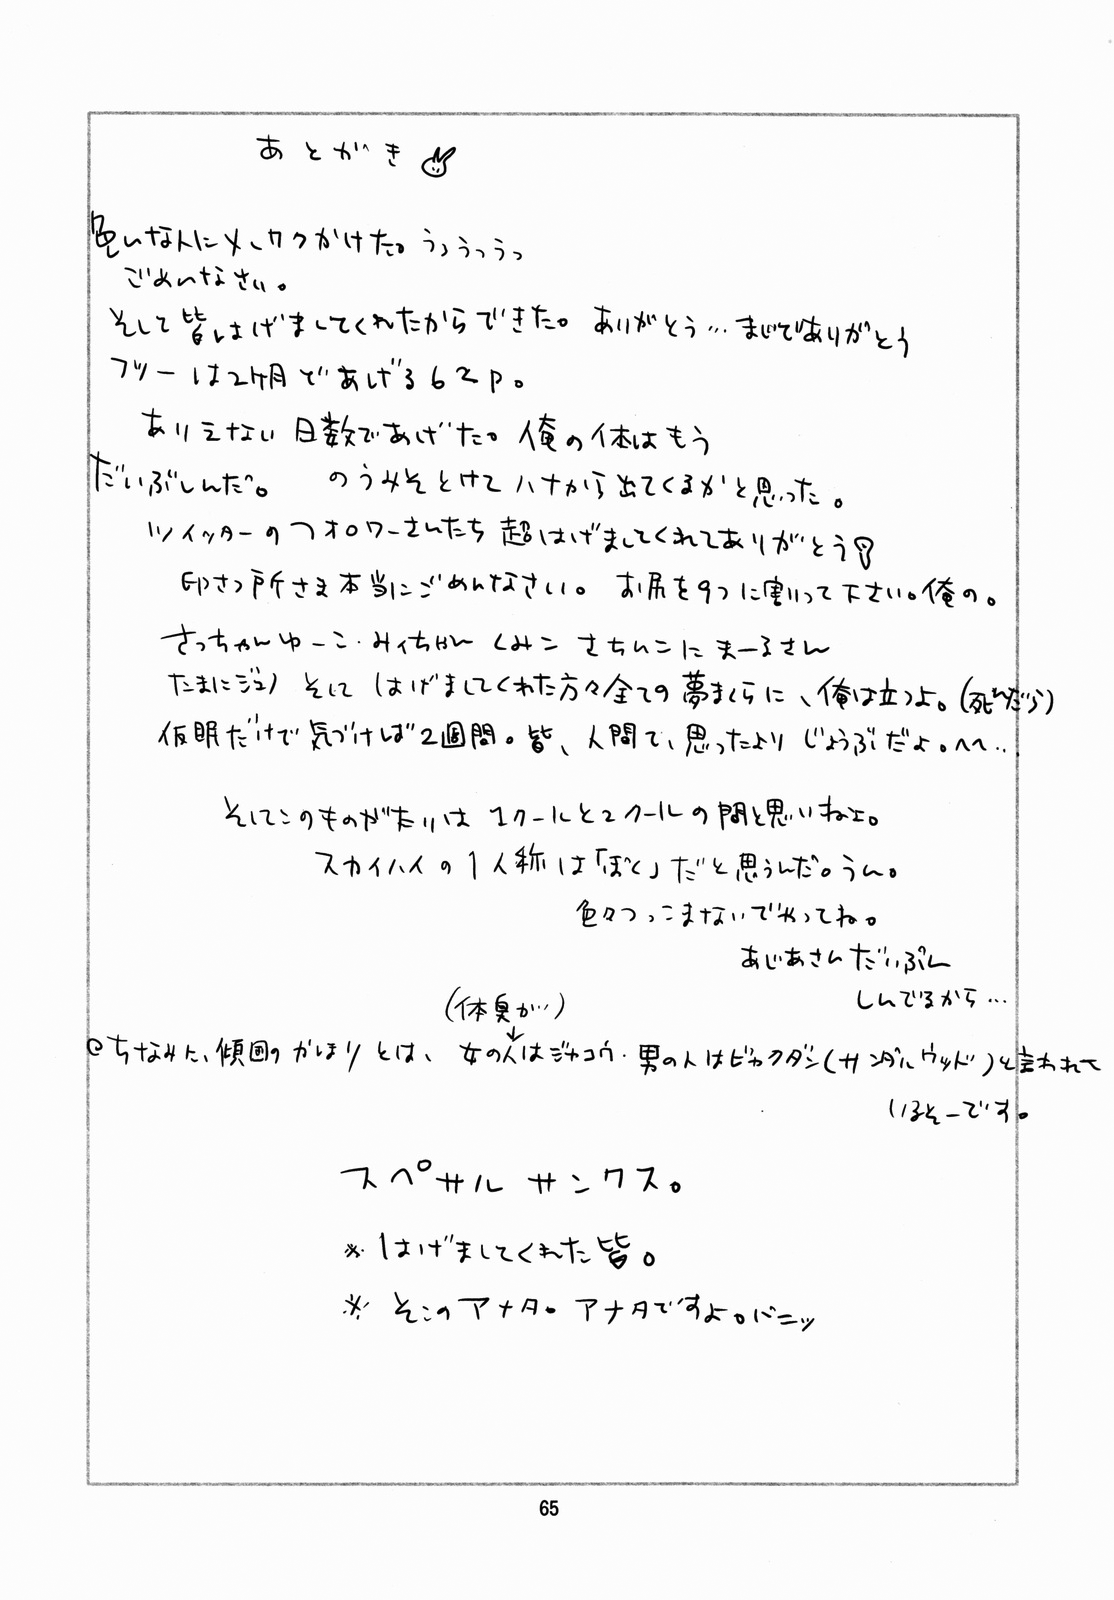 あとがき
色いな人にメイワクかけた。うっうっうっ
ごめいなさい。
そして皆はげましてくれたからできた。ありがとう…まじでありがとう
フツーは2ケ月であげる62p。
ありえない日数であげた。俺の体はもう
だいぶしんだ。 のうみそとけてハナから出てくるかと思った。
ツイッターのフォロワーさんたち超はげましてくれてありがとう!
印さつ所さま本当にごめんなさい。お尻を9つに割って下さい。俺の。
さっちゃんゆーこ・みぃちゃん くみこ さちいこに まーるさん
たまにジュノ そして はげましてくれた方々全ての夢まくらに、俺は立つよ。(死んだら)
仮眠だけで気づけば2週間。皆、人間て、思ったより じょうぶだよ。へへ…
そしてこのものがたりは 1クールと2クールの間と思いねぇ。
スカイハイの1人称は「ぼく」だと思うんだ。うん。
色々つっこまないでやってね。
あじあさん だいぶん
しんでるから…
(体臭が…)
ちなみに、傾国のかほりとは、女の人はジャコウ・男の人はビャクダン(サンダルウッド)と言われて
いるそーです。
スペサル サンクス。
※はげましてくれた皆。
※そこのアナタ。アナタですよ。バニッ
65